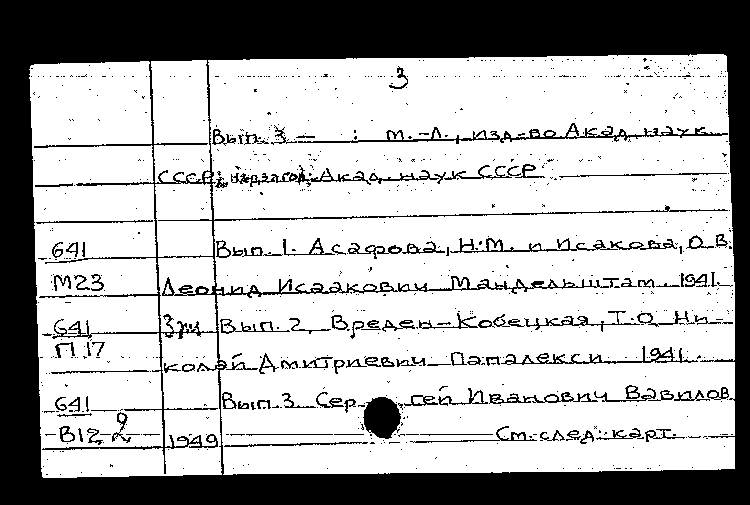 3
Вып. 3 — : М.-Л., изд-во Акад. наук
СССР; Акад. наук СССР
641 Вып. 1. Асафова, Н.М. и Исакова, О.В.
М23 Леонид Исаакович Мандельштам. 1941.
641 Вып. 2, Вреден-Кобецкая, Т.О. Ни-
П17 колай Дмитриевич Папалекси 1941.
641 Вып. 3. Сер гей Иванович Вавилов
В12 2 1949 См. след. карт.